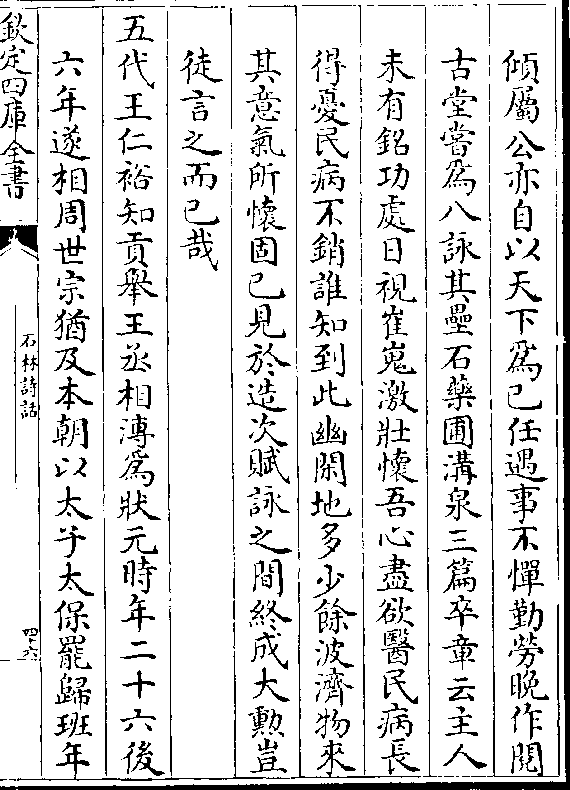 傾屬公亦自以天下爲己任遇事不憚勤勞晚作閱
古堂嘗爲八詠其壘石藥圃溝泉三篇卒章云主人
未有銘功處日視崔嵬激壯懷吾心盡欲醫民病長
得憂民病不銷誰知到此幽閑地多少餘波濟物來
其意氣所懷固已見於造次賦詠之間終成大勲豈
徒言之而已哉
五代王仁裕知貢舉王丞相溥爲狀元時年二十六後
六年遂相周世宗猶及本朝以太子太保罷歸班年
欽定四庫全書
石林詩話
四十六